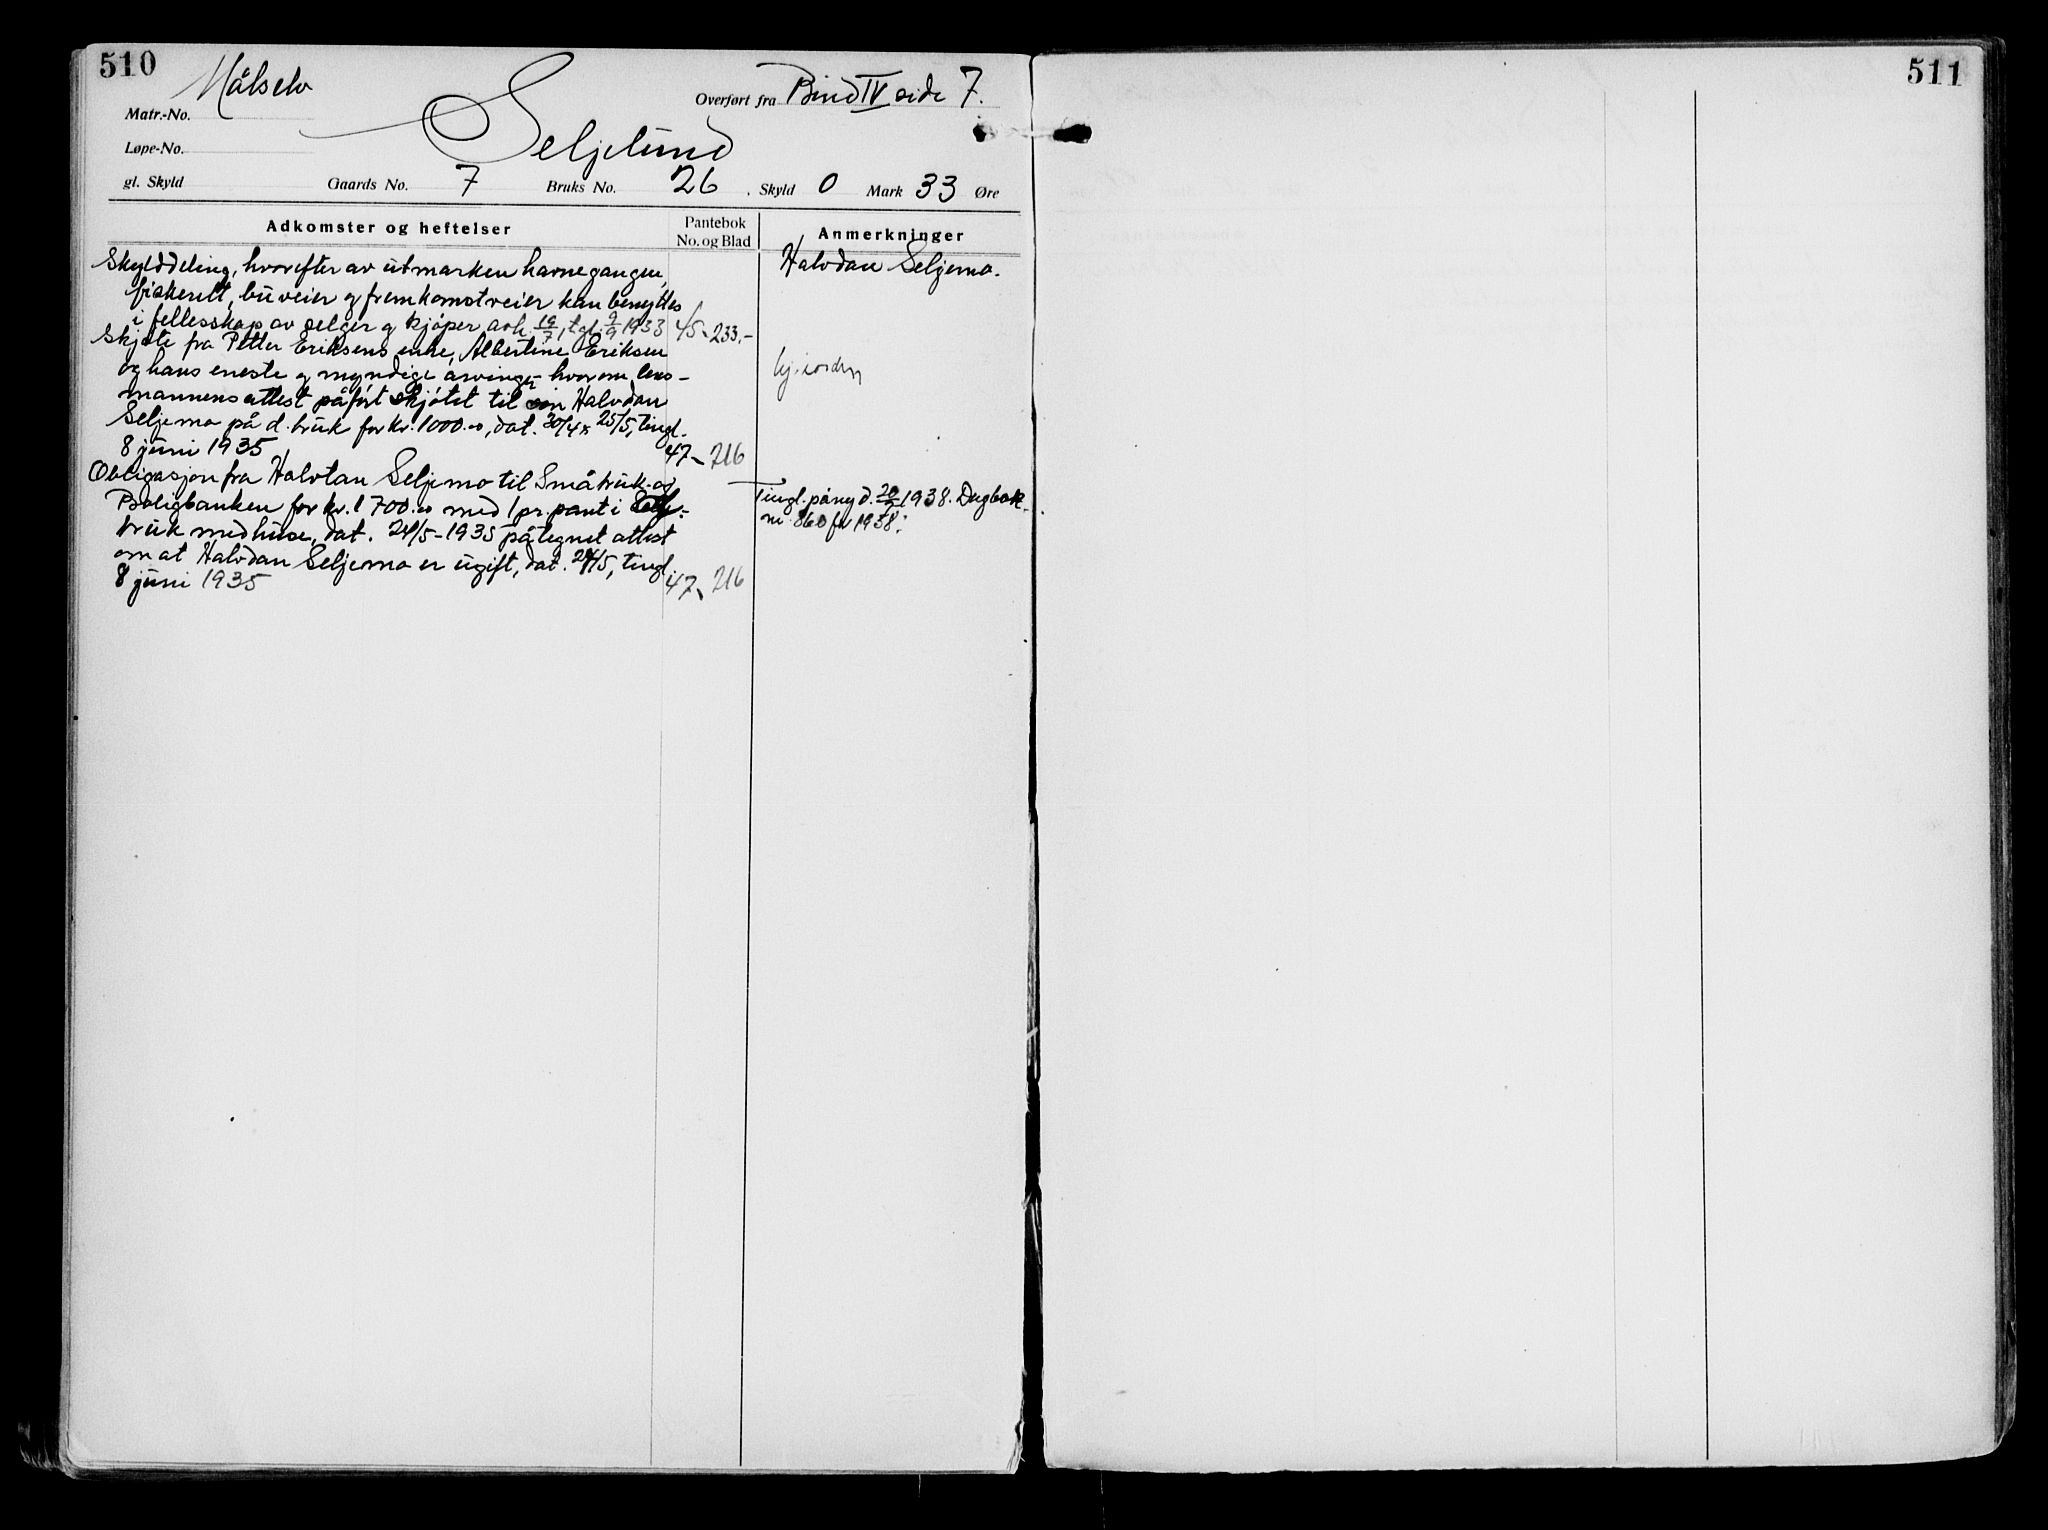 510
Målselv
Matr.-No.
Overført fra Bind IV side 7.
Løpe-No.
Seljelund
gl. Skyld Gaards No. 7 Bruks No. 26 . Skyld 0 Mark 33 Øre
Adkomster og heftelser
Pantebok
No. og Blad
Anmerkninger
Skylddeling, hvorefter av utmarken havnegangen,
fiskerett, buveier og fremkomstveier kan benyttes
i fellesskap av selger og kjøper avh. 19/7, tgl. 9/9 1933 45-233.-
Skjøte fra Petter Eriksens enke, Albertine Eriksen
og hans eneste og myndige arvinger hvorom lens-
mannens attest påført skjøtet til Halvdan
Seljemo på d. bruk for kr. 1000.00, dat. 30/4 & 25/5, tingl.
8 juni 1935 47- 216
Obligasjon fra Halvdan Seljemo til Småbruk- og
Boligbanken for kr. 1700.00 med 1 pr. pant i
bruk med huse, dat. 24/5-1935 påtegnet attest
om at Halvdan Seljemo er ugift, dat. 24/5, tingl.
8 juni 1935 47- 216
Halvdan Seljemo.
Tingl. påny d. 1938. Dagbok-
nr. 860 for 1938.
511